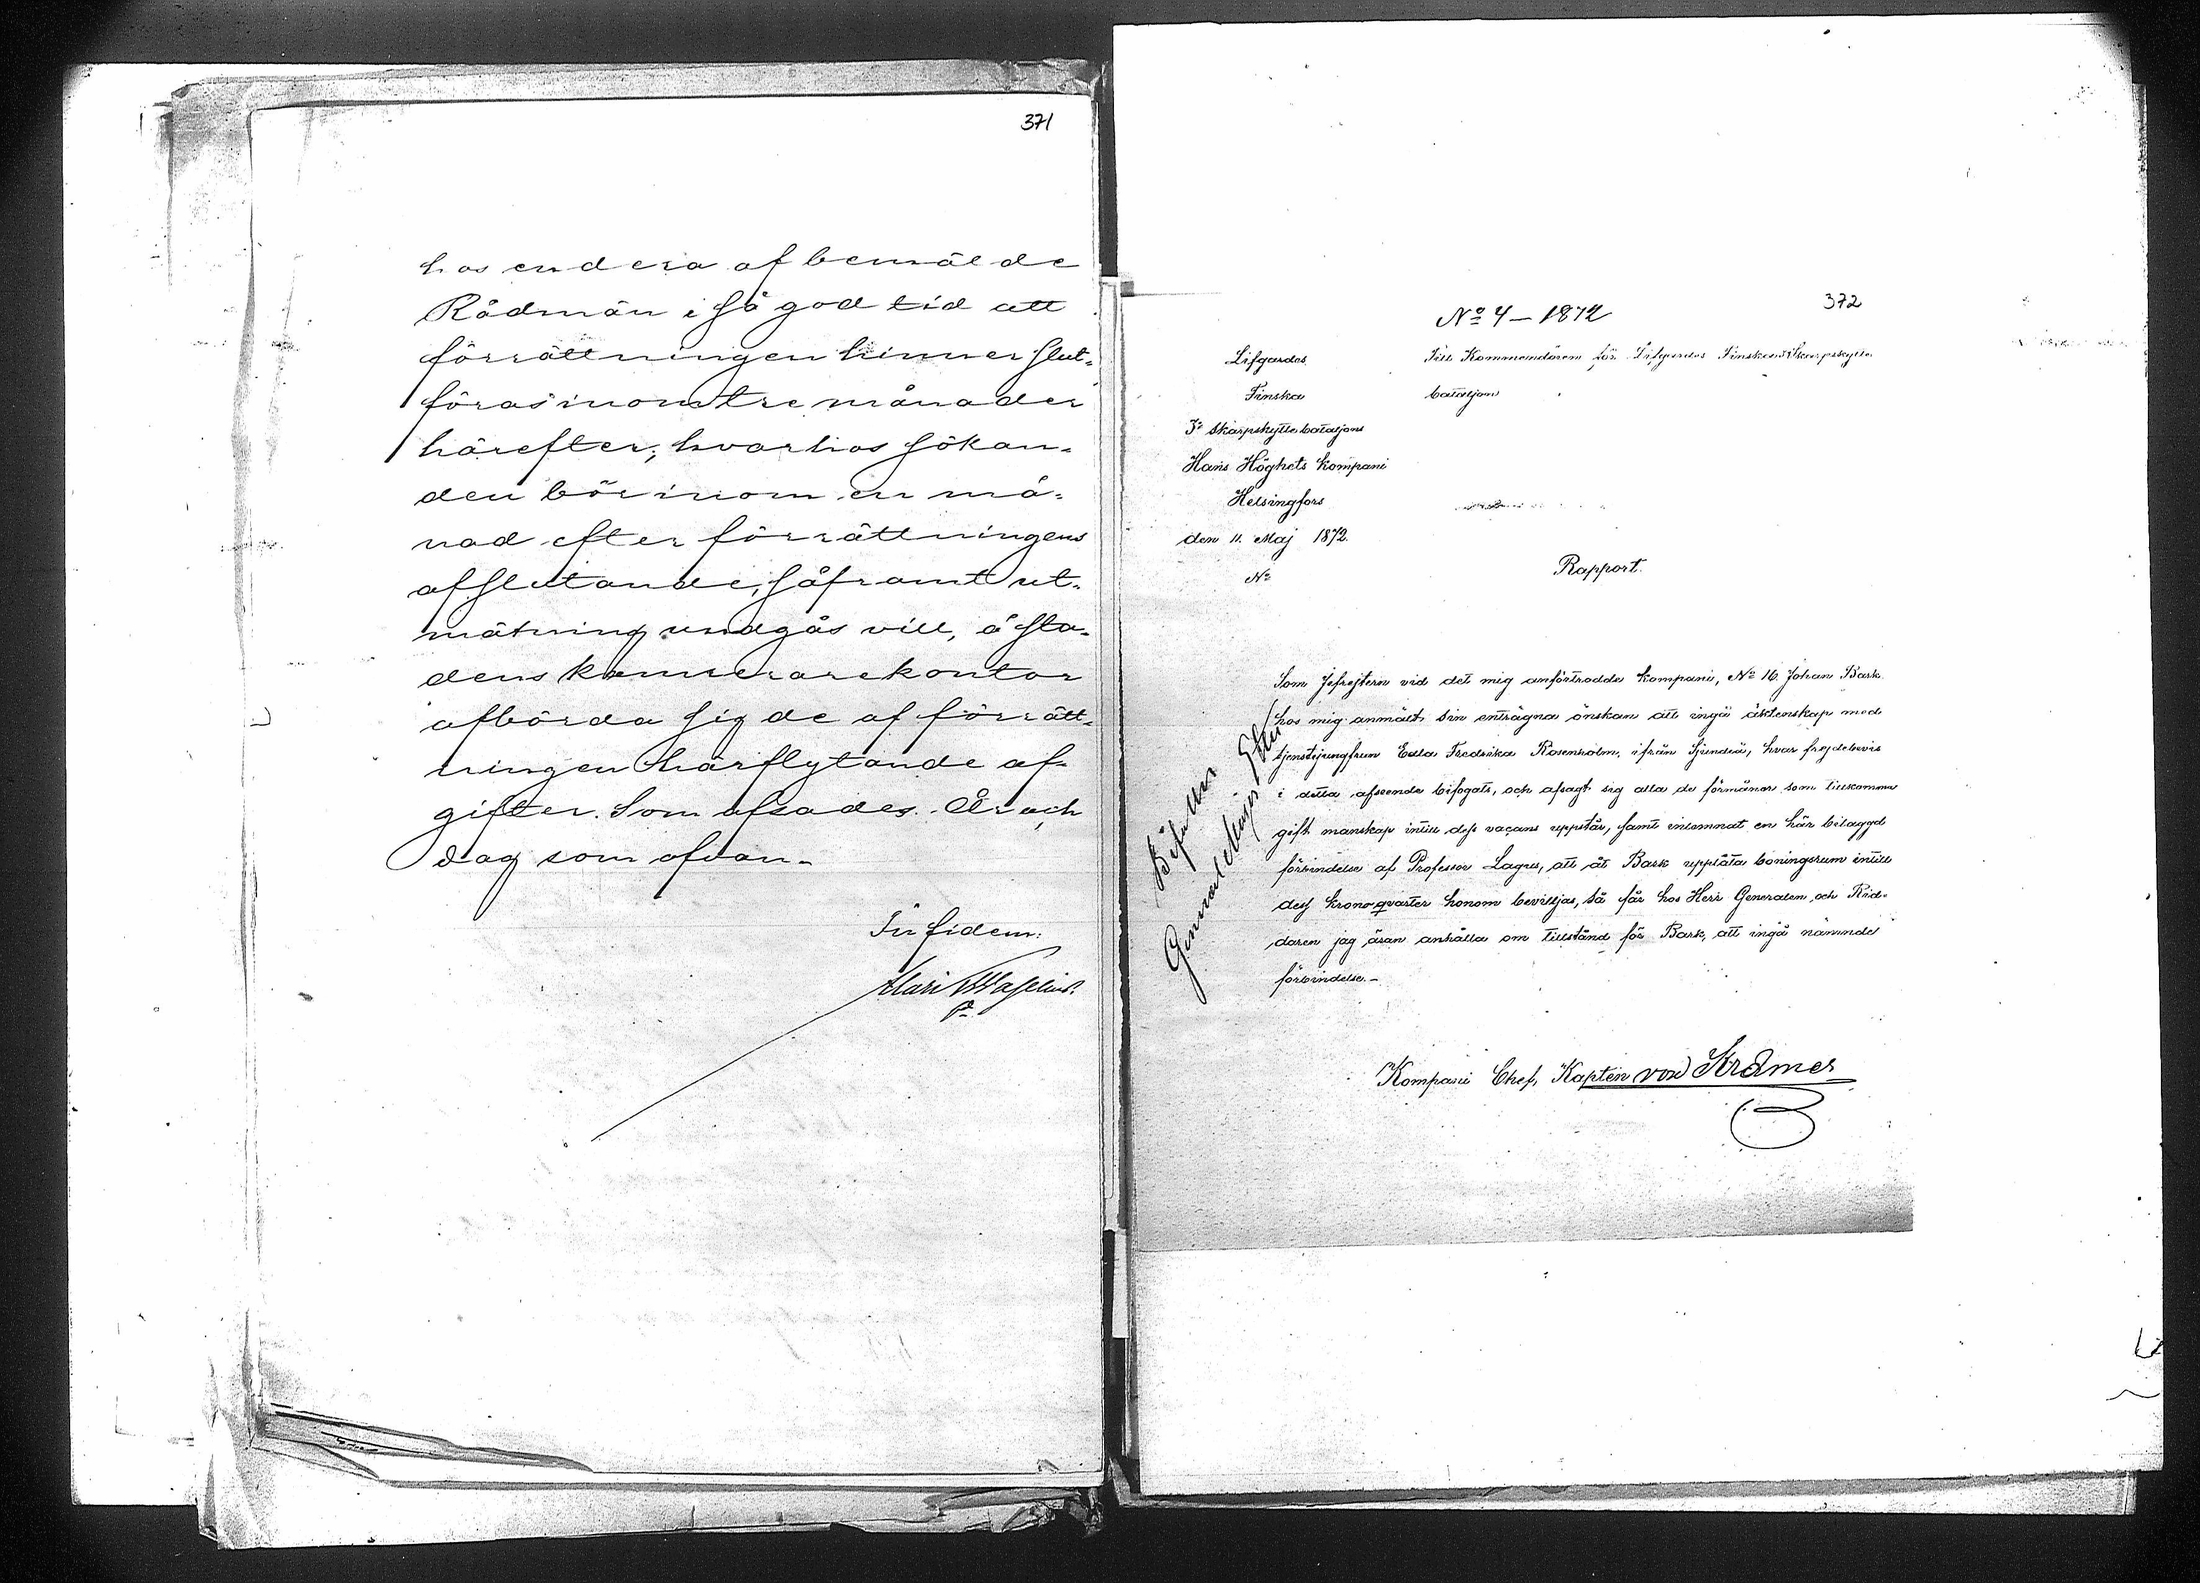 371
hos endera af bemälde
Rådmän i så god tid att
förrättningen hinner slut-
föras inom tre månader
härefter; hvarhos sökan-
den bör inom en må-
nad efter förrättningens
afslutande, såframt ut-
mätning undgås vill, å sta-
dens kamrerarekontor
afbörda sig de af förrätt-
ningen härflytande af-
gifter. Som afsades. År och
dag som ofvan.
In fidem:
372
No 4 – 1872
Lifgardes
Finska
3e Skarpskyttebataljons
Hans Höghets kompani
Helsingfors
den 11. Maj 1872.
No
Till Kommendören för Lifgardes Finska Skarpskytte
bataljon
Rapport.
Som Jefrejtern vid det mig anförtrodda kompani, No 16 Johan Bark
hos mig anmält sin enträgna önskan att ingå äktenskap med
tjenstejungfrun Edla Fredrika Rosenholm, ifrån Sjundeå, hvars frejdebevis
i detta afseende bifogats, och afsagt sig alla de förmåner som tillkomma
gift manskap intill dess vacans uppstår, samt inlemnat en här bilaggd
förbindelse af Professor Lagus, att åt Bark upplåta boningsrum intill
dess kronoqvarter honom beviljas, så får hos Herr Generalen och Rid-
daren jag äran anhålla om tillstånd för Bark, att ingå nämnde
förbindelse.–
Kompani Chef, Kapten von Kræmer
Bifalles
General Major